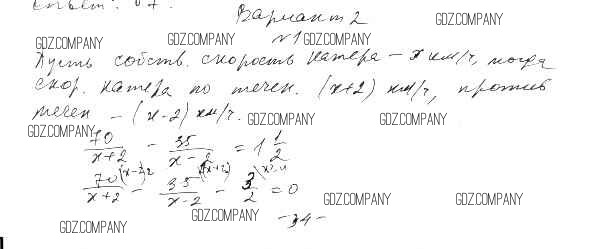 Ответ: 64.
Вариант 2
GDZ.COMPANY
GDZ.COMPANY GDZ.COMPANY №1 GDZ.COMPANY
Пусть собств. скорость катера – x км/ч, тогда
скор. катера по течен. (x+2) км/ч, против
течен – (x-2) км/ч. GDZ.COMPANY GDZ.COMPANY
GDZ.COMPANY
70/x+2 - 35/x-2 = 1 1/2
70/x+2 - 35/x-2 - 3/2 = 0
GDZ.COMPANY GDZ.COMPANY GDZ.COMPANY GDZ.COMPANY
-34-